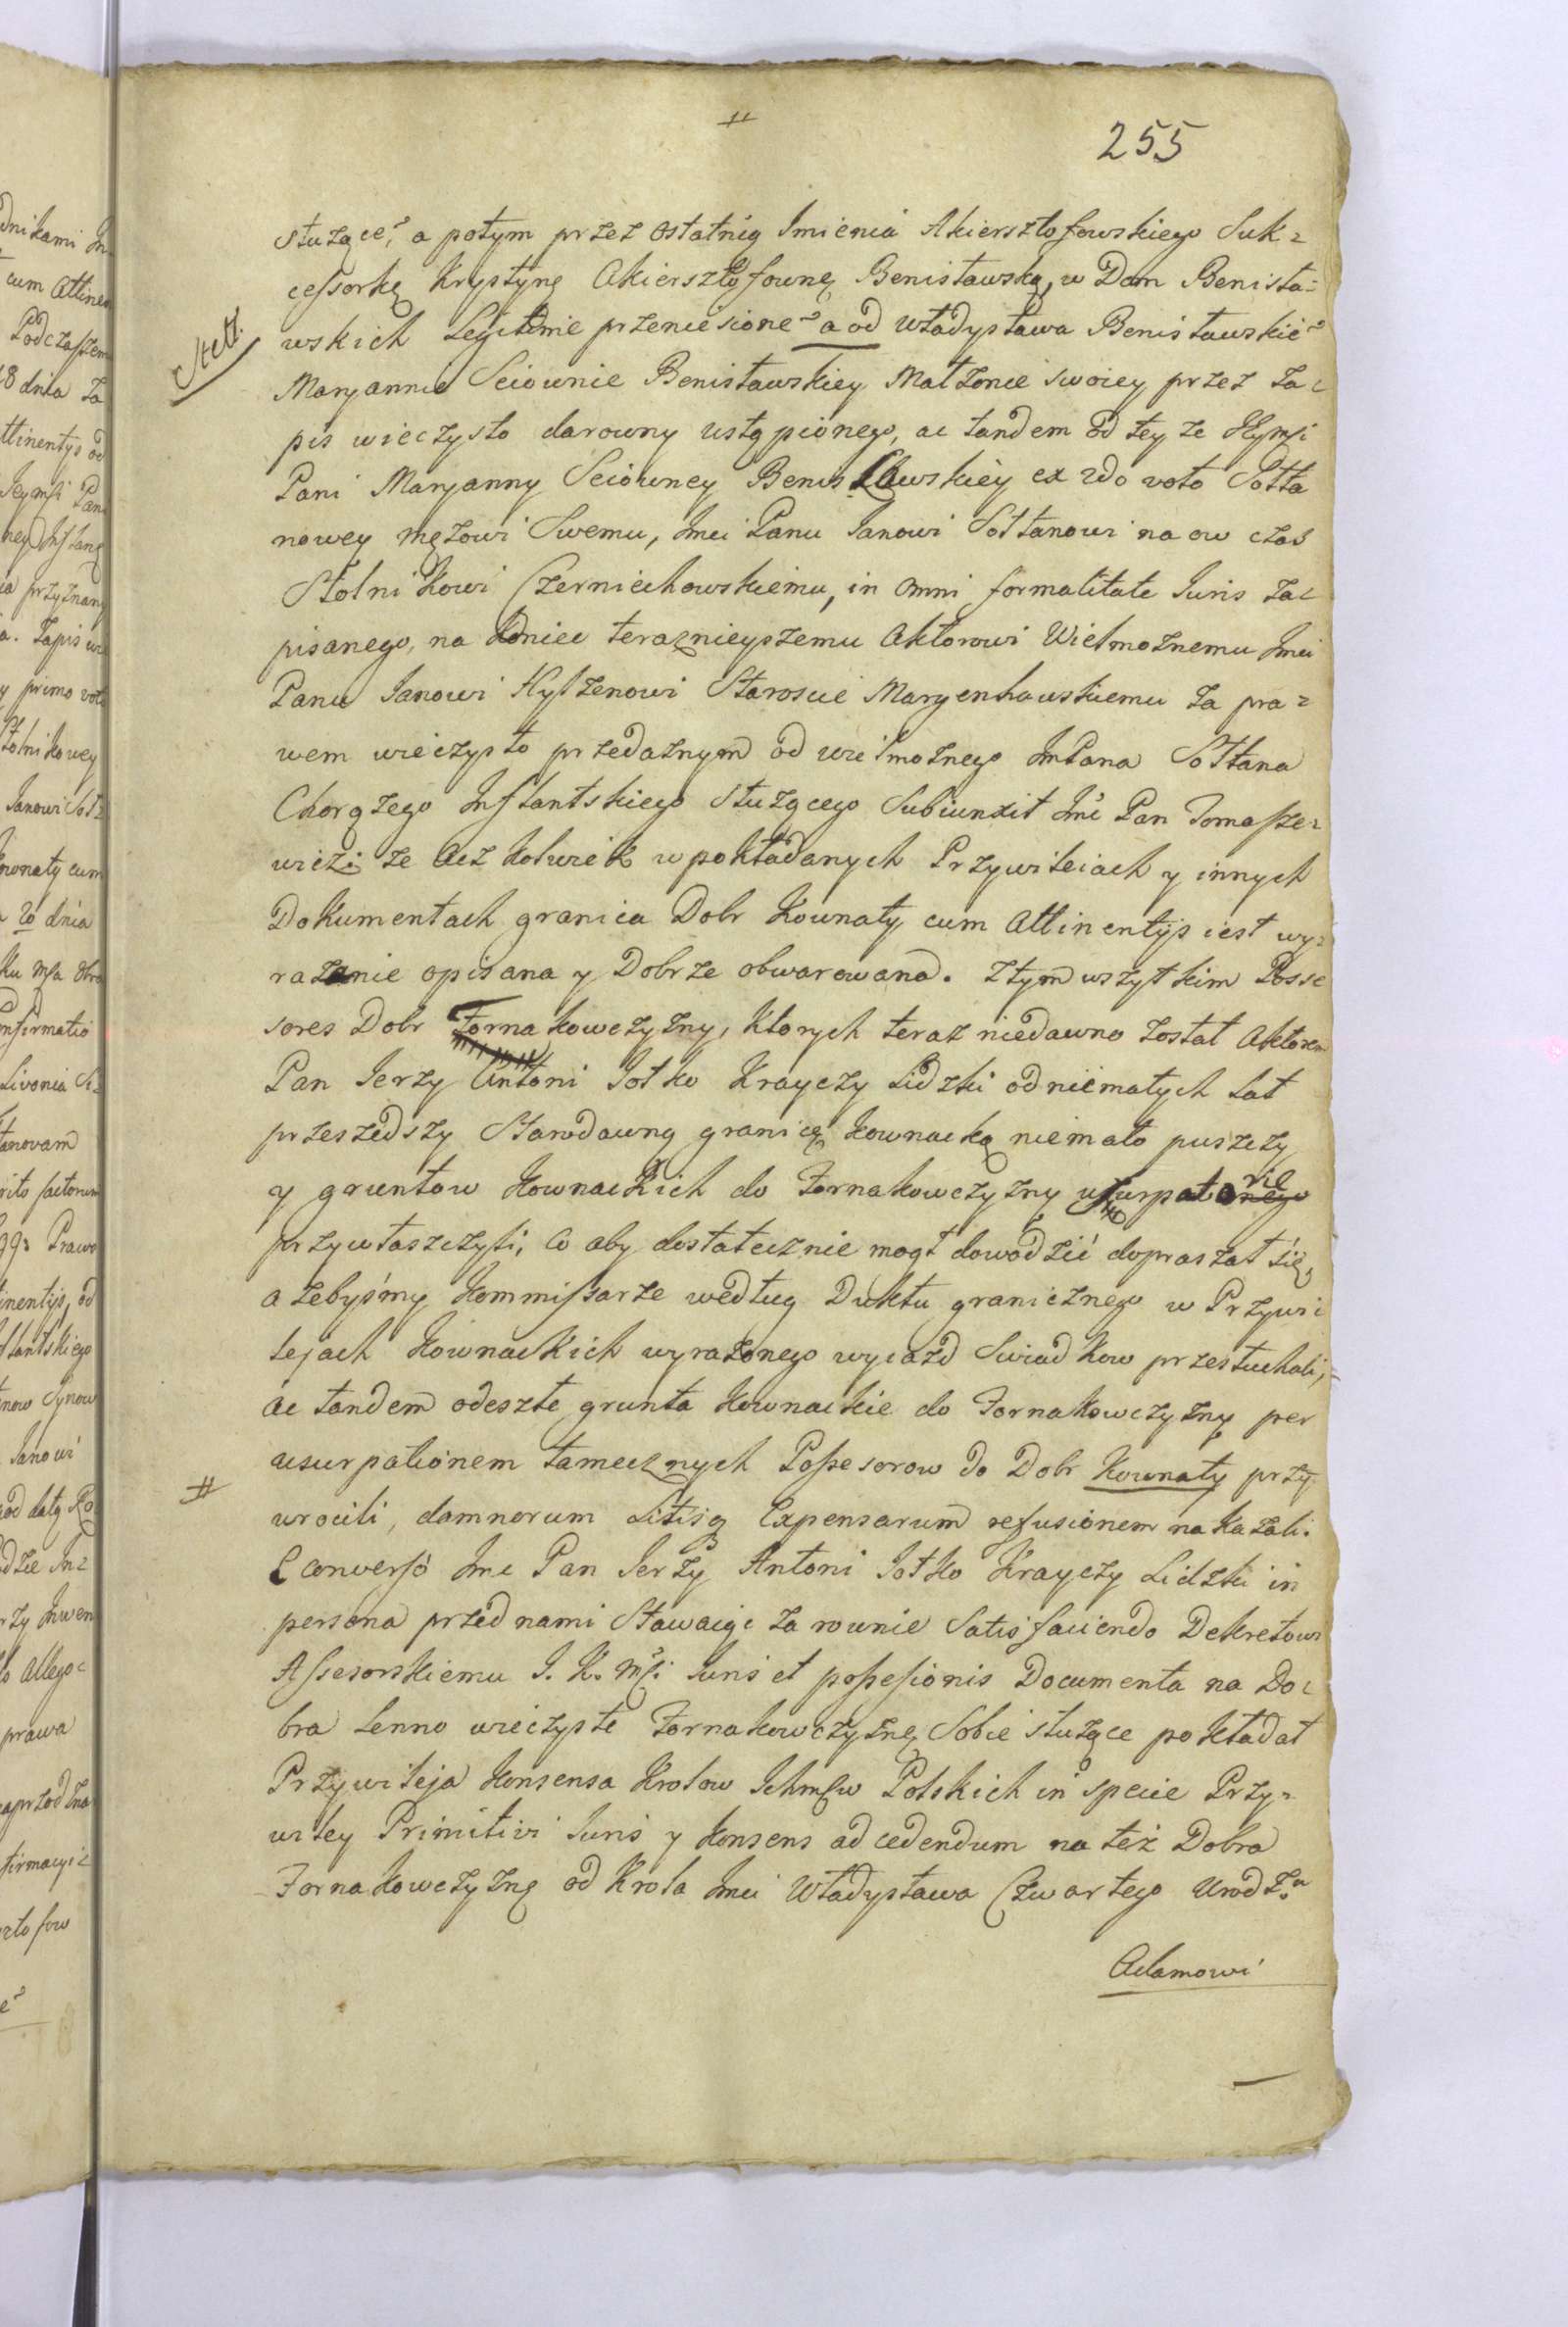 255
służące[o], a potym przez ostatnią Imienia Akiersztofowskiego Suk=
cessorkę Krystynę Akiersztofownę Benisławską, w Dom Benisła=
wskich Legitimie przeniesione[o] a od Władysława Benisławskie[o]
Maryannie Sciownie Benisławskiey Małżonie swoiey przez za=
pis wieczysto darowny ustąpionego, ac tandem od tey ze JEymsci
Pani Maryanny Sciowney Benisławskiey ex 2do voto Sołta
nowey mężowi Swemu, Jmci Panu Janowi Sołtanowi na ow czas
Stolnikowi Czerniechowskiemu, in omni formalitate Juris za=
pisanego, na koniec teraznieyszemu Aktorowi Wielmożnemu Jmci
Panu Janowi Hylzenowi Staroscie Maryenhauskiemu za pra=
wem wieczysto przedażnym od wielmożnego JmPana Sołtana
Chorążego Inflantskiego służącego Subiunxit Jmć Pan Tomasze=
wicz: że acz kolwiek w pokładanych Przywileiach y innych
Dokumentach granica Dobr Kownaty cum Attinentijs iest wy=
raźnie opisana y Dobrze obwarowana. Z tym wszytkim Posse
sores Dobr Fornakowczyzny, ktorych teraz niedawno został Aktorem
Pan Jerzy Antoni Jotko Krayczy Lidzki od niemałych lat
przeszedszy Starodawną granicę Kownacką niemało puszczy
y gruntow Kownackich do Fornakowczyzny usurpatorie
przywłaszczyli, Co aby dostatecznie mogł dowodzić dopraszał się,
a żebyśmy Kommissarze według Duktu granicznego w Przywi
lejach Kownackich wyrażonego wyiazd Swiadkow przesłuchali,
ac tandem odeszłe grunta Kownackie do Fornakowczyzny per
usurpationem tamecznych Possesorow do Dobr Kownaty przy
wrocili, damnorum Litisq Expensarum refusionem nakazali.
E converso Jmc Pan Jerzy Antoni Jotko Krayczy Lidzki in
persona przed nami Stawaiąc za rownie Satisfaciendo Dekretowi
Assesorskiemu J. K. Msci Juris et possesionis Documenta na Do=
bra Lenno wieczyste Fornakowczyznę Sobie służące pokładał
Przywileja Konsensa Krolow Ichmsciw Polskich in specie Przy=
wiley Primitivi Juris y Konsens ad cedendum na też Dobra
Fornakowczyznę od Krola Jmci Władysława Czwartego Urodz.
Adamowi